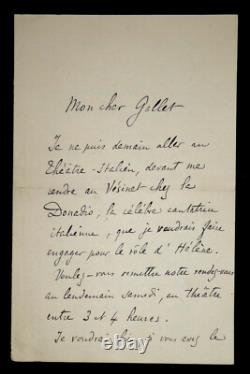 Mon cher Gallet
Je ne puis demain aller au
Théâtre-Italien, devant me
rendre au Vésinet chez la
Donadio, la célèbre cantatrice
italienne, que je voudrais faire
engager pour le rôle d'Hélène.
Voulez-vous remettre notre rendez-vous
au lendemain samedi, au théâtre
entre 3 et 4 heures.
Je voudrais vous avez le
thumbimg.com